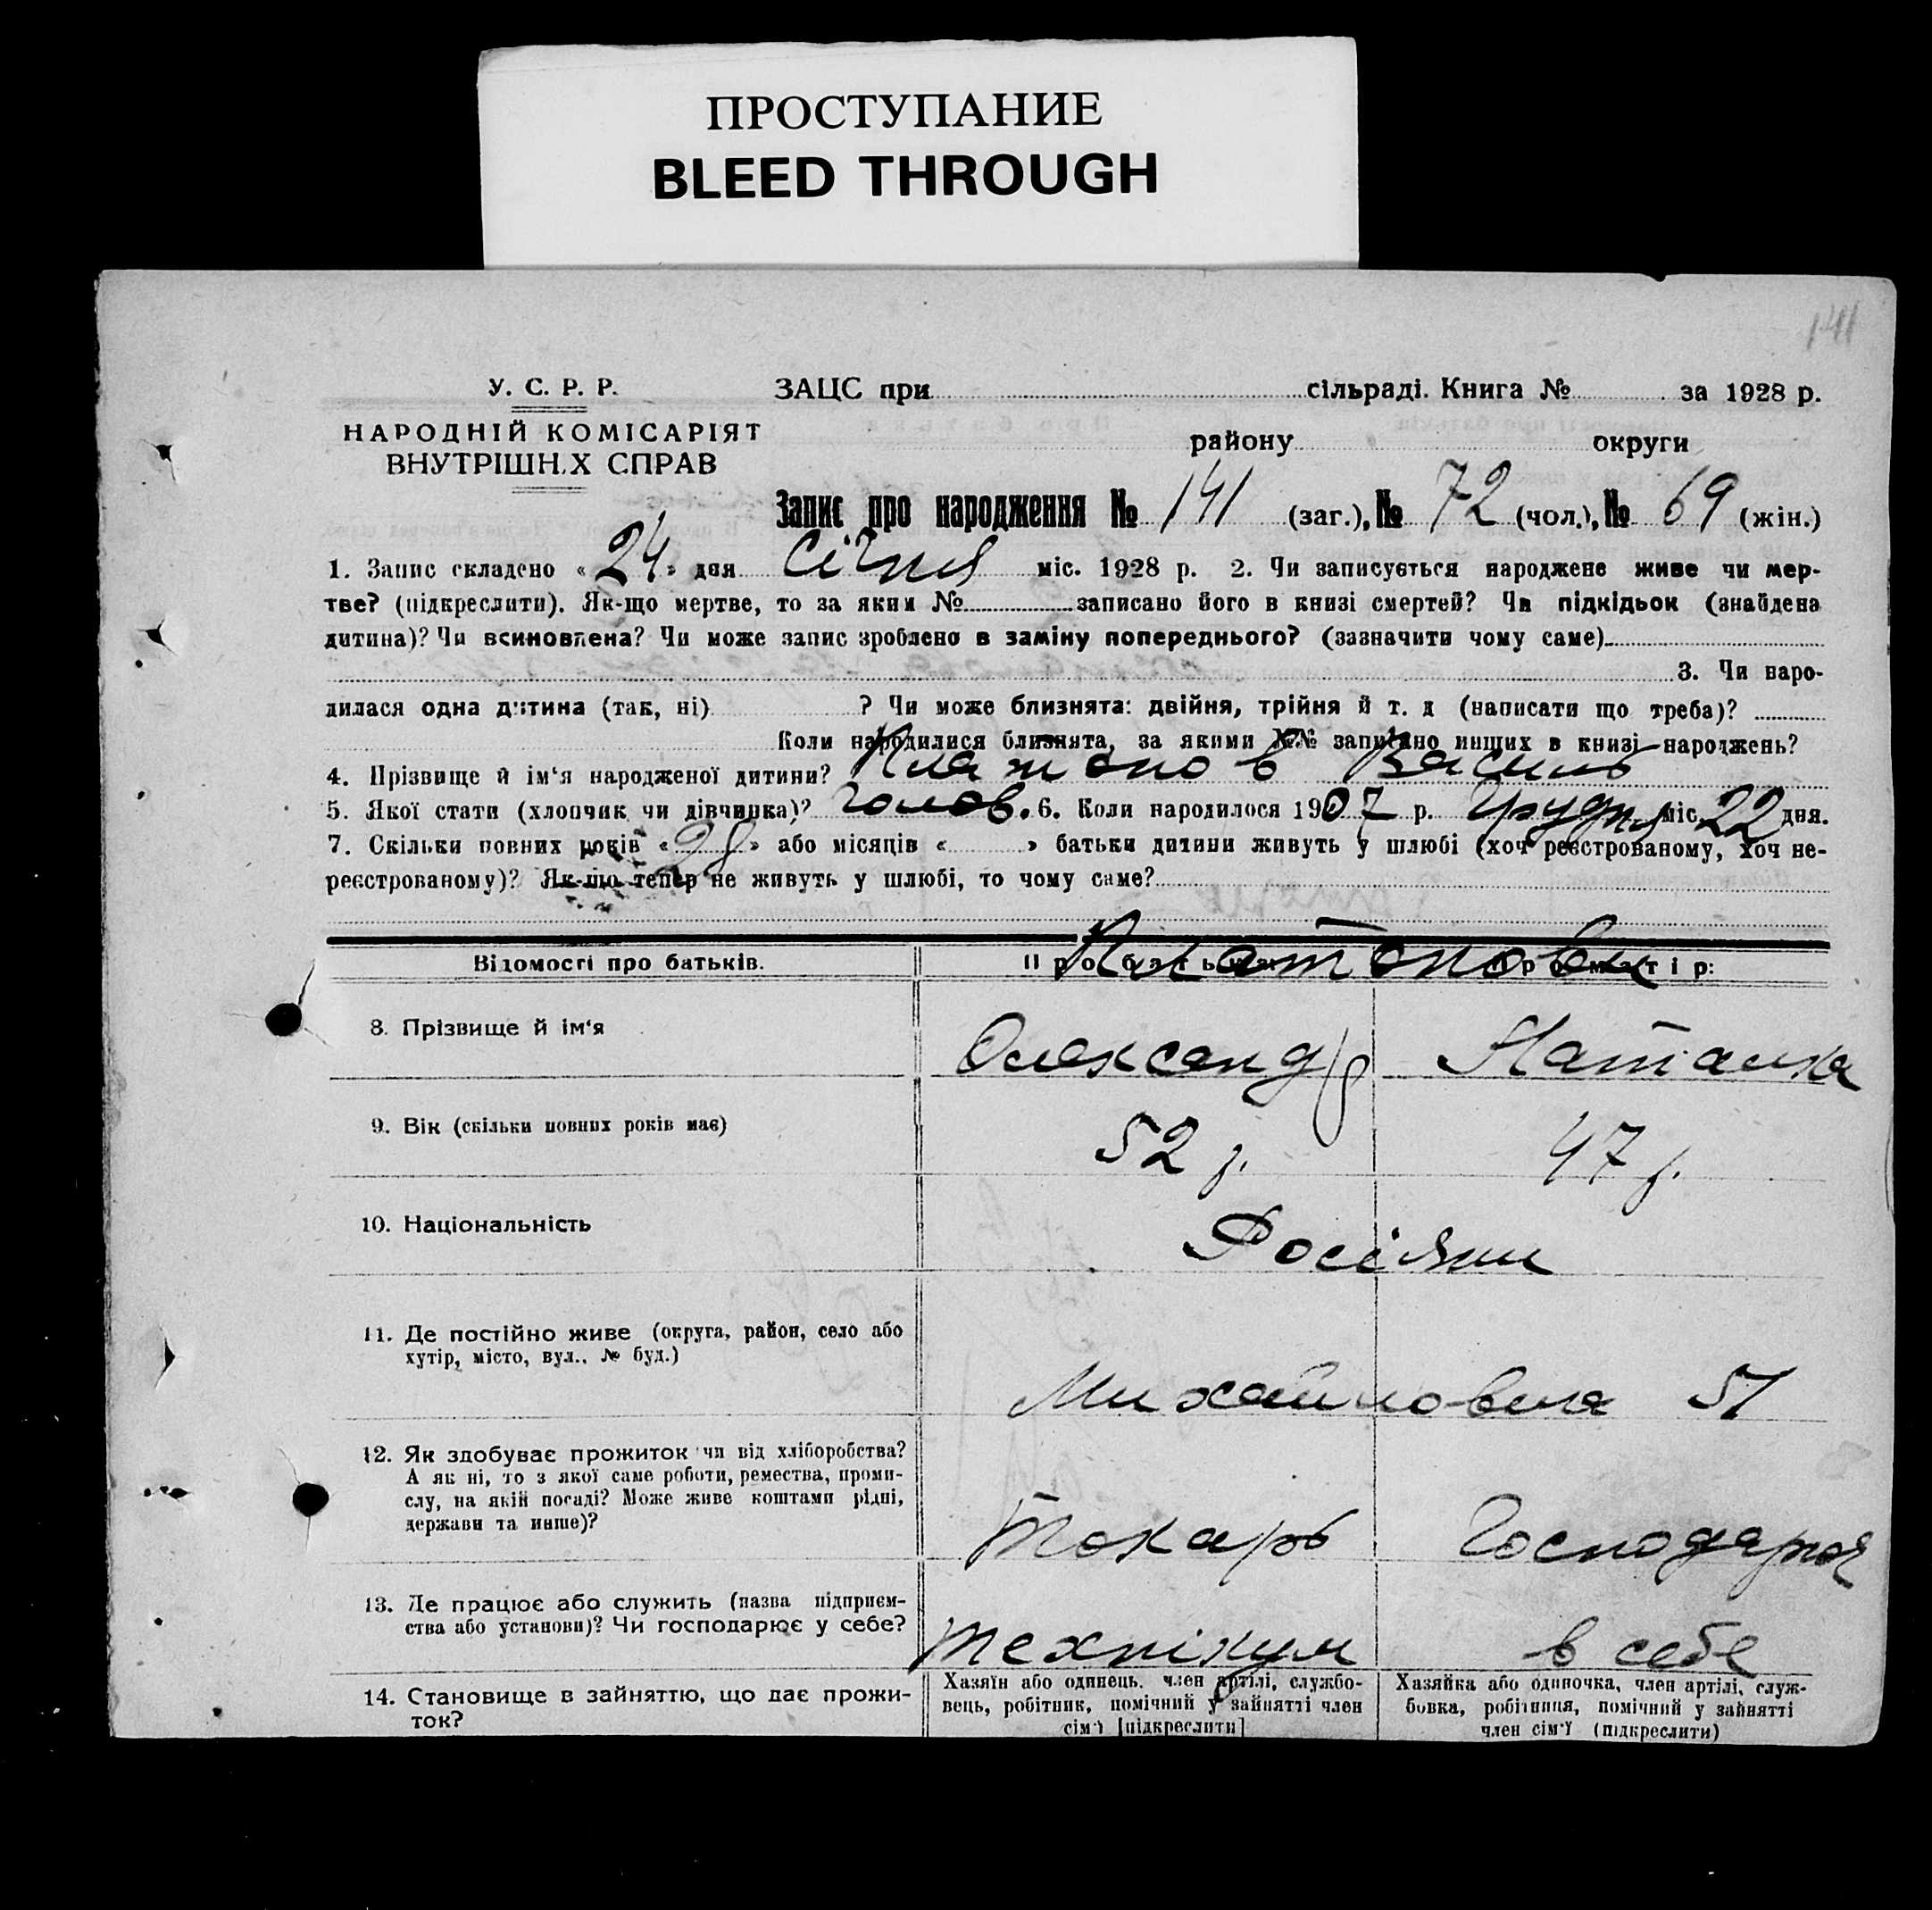 ПРОСТУПАНИЕ
BLEED THROUGH
141
У. С. Р. Р.
НАРОДНІЙ КОМІСАРІЯТ
ВНУТРІШН.Х СПРАВ
ЗАЦС при сільраді. Книга № за 1928 р.
району округи
Запис про народження № 141 (заг.), № 72 (чол.), № 69 (жін.)
1. Запис складено « 24 » дня Січня міс. 1928 р. 2. Чи записується народжене живе чи мер-
тве? (підкреслити). Як-що мертве, то за яким № записано його в книзі смертей? Чи підкідьок (знайдена
дитина)? Чи всиновлена? Чи може запис зроблено в заміну попереднього? (зазначити чому саме)
3. Чи наро-
дилася одна дитина (так, ні) ? Чи може близнята: двійня, трійня й т. д (написати що треба)?
Коли народилися близнята, за якими №№ записано инших в книзі народжень?
4. Прізвище й ім‘я народженої дитини? Платонов Василь
5. Якої стати (хлопчик чи дівчинка)? голов. 6. Коли народилося 1907 р. Грудня міс. 22 дня.
7. Скільки повних років « 28 » або місяців « » батьки дитини живуть у шлюбі (хоч реєстрованому, хоч не-
реєстрованому)? Як-що тепер не живуть у шлюбі, то чому саме?
Відомості про батьків. Про батька: Про матір:
Платонови
8. Прізвище й ім‘я Олександр Наталка
9. Вік (скільки повних років має) 52 р. 47 р.
10. Національність Росіяни
11. Де постійно живе (округа, район, село або
хутір, місто, вул., № буд.)
Михайловска 51
12. Як здобуває прожиток чи від хліборобства?
А як ні, то з якої саме роботи, ремества, проми-
слу, на якій посаді? Може живе коштами рідні,
держави та инше)?
Токарь Господарка
13. Де працює або служить (назва підприєм-
ства або установи)? Чи господарює у себе?
Технікум в себе
14. Становище в зайняттю, що дає прожи-
ток?
Хазяїн або одинець. член артілі, службо-
вець, робітник, помічний у зайнятті член
сім‘ї [підкреслити]
Хазяйка або одиночка, член артілі, служ-
бовка, робітниця, помічний у зайнятті
член сім‘ї (підкреслити)